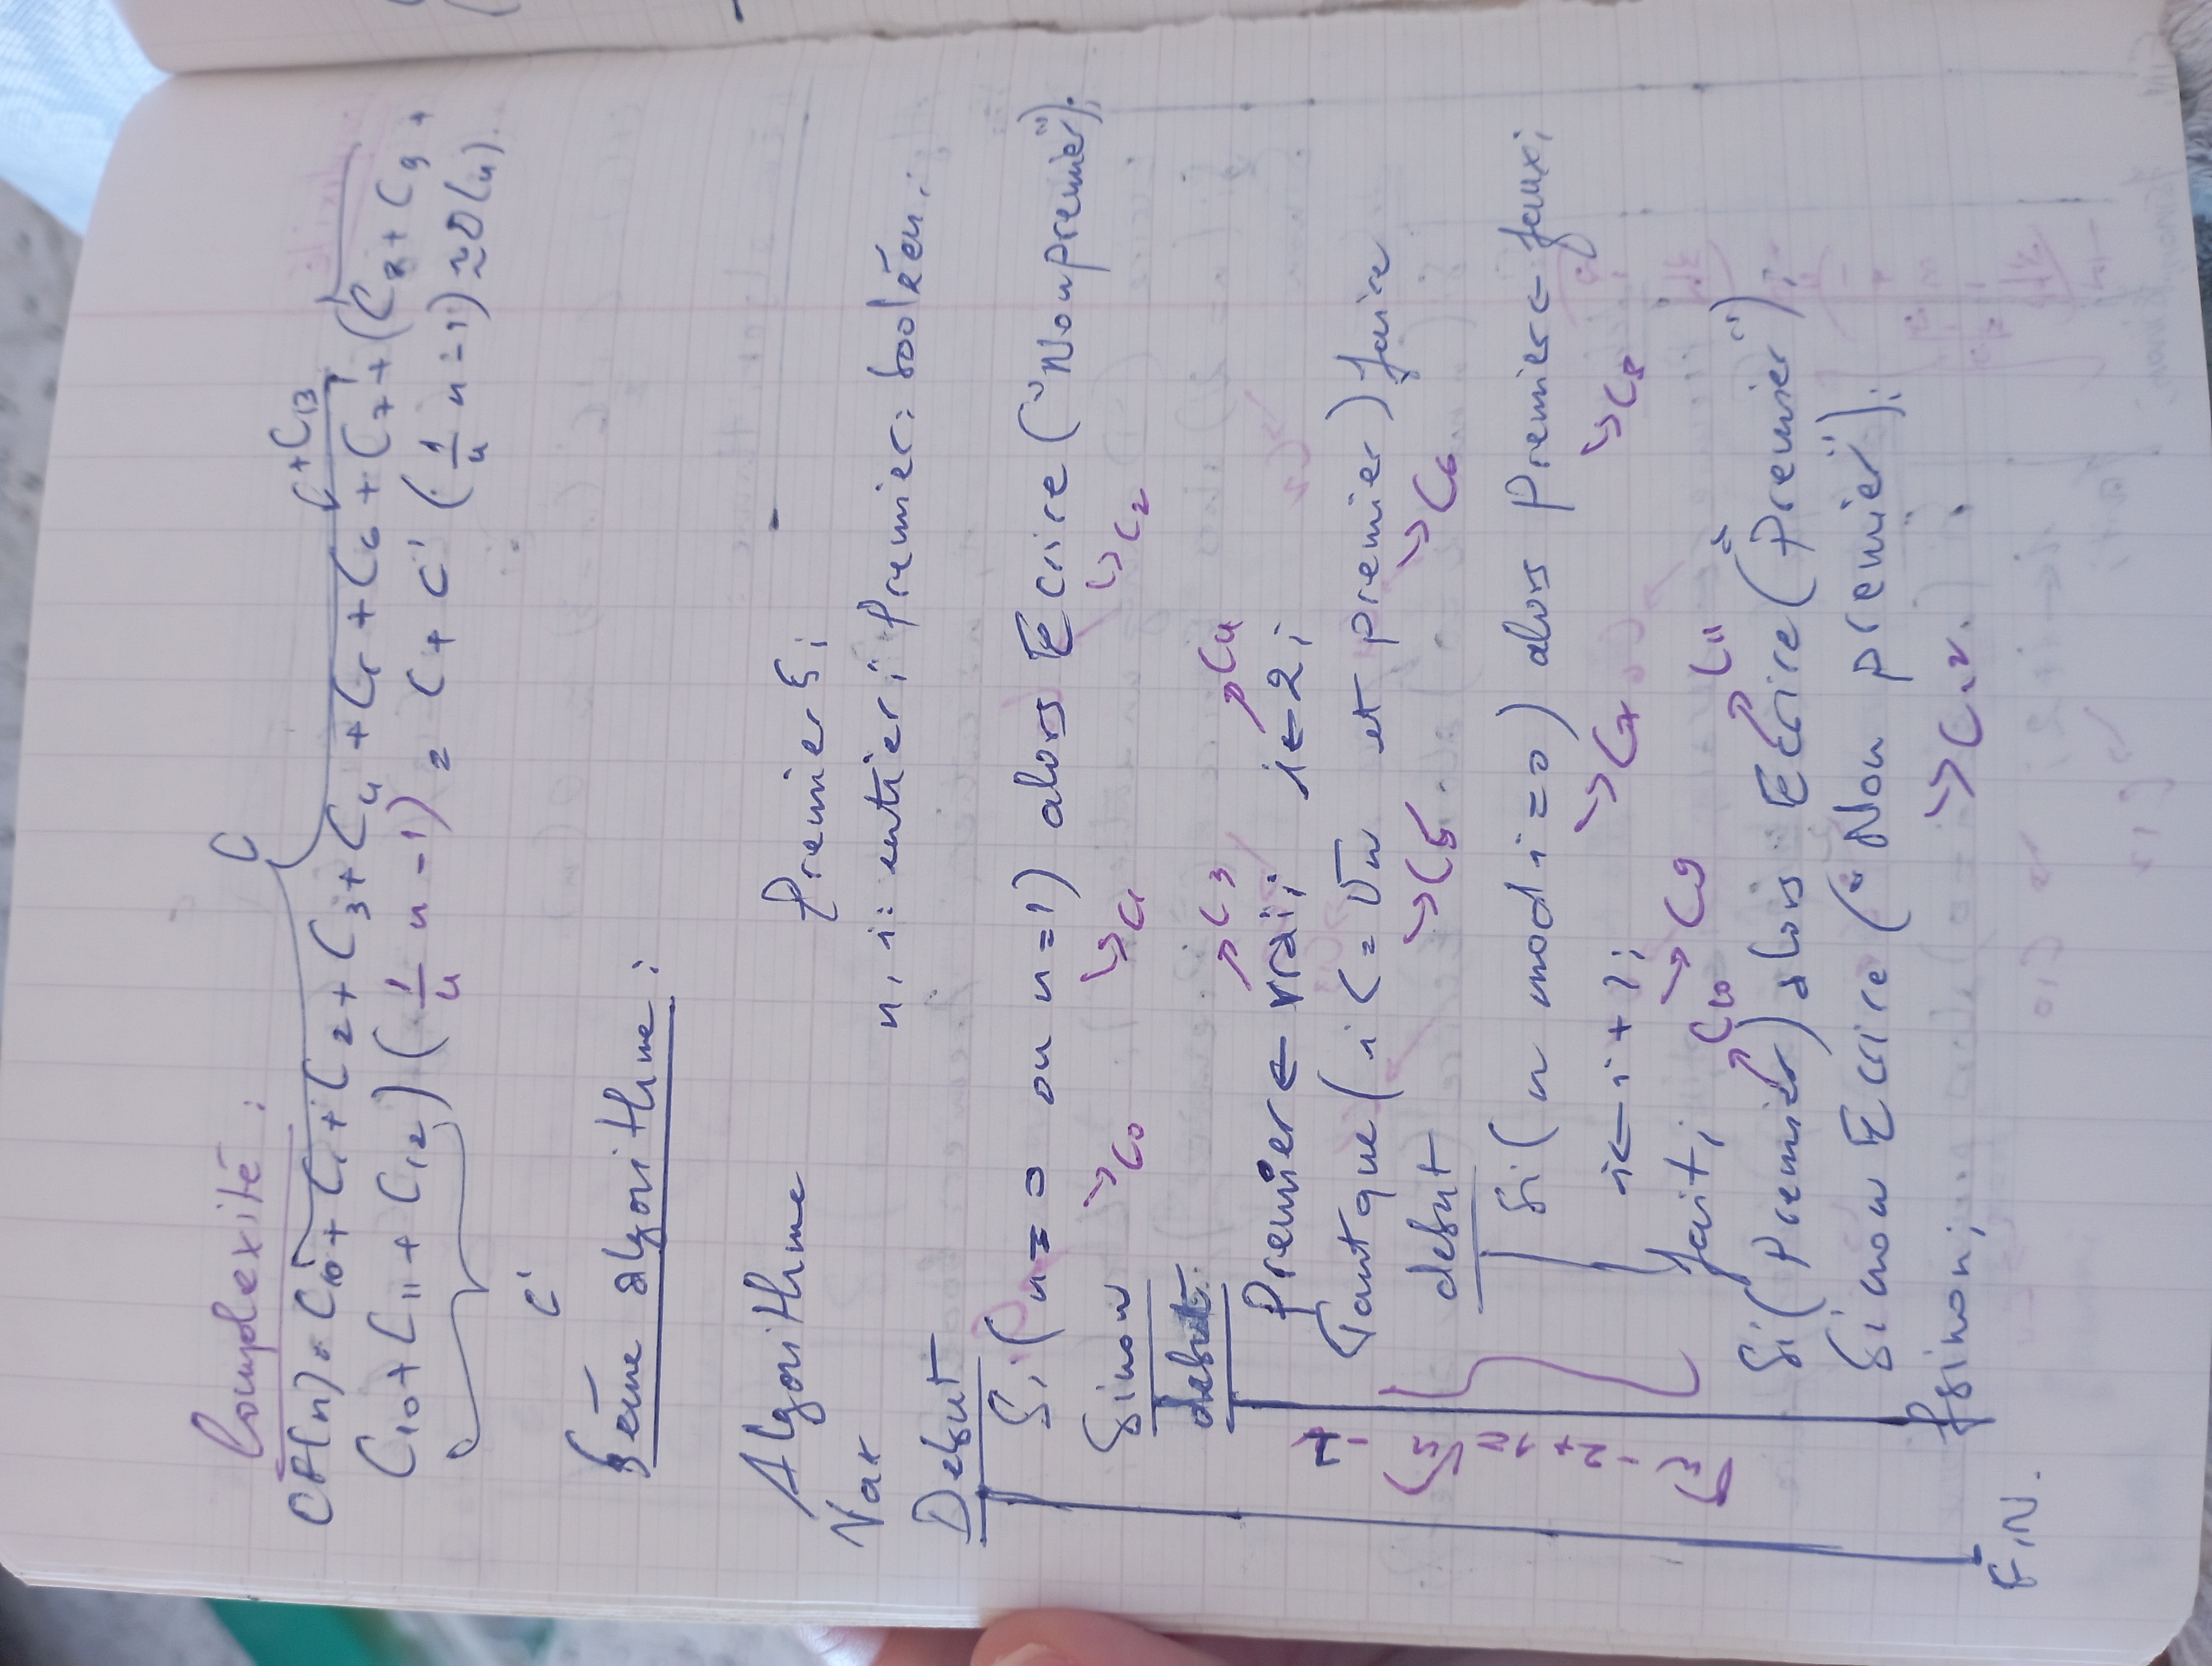 Complexité :
C
CA(n) = C0 + C1 + C2 + C3 + C4 + C5 + C6 + C7 + (C8 + C9 +
+C13
C10 + C11 + C12) (1/4 n - 1) = C + C' (1/4 n - 1) ≈ O(n).
C'
5ème algorithme :
Algorithme Premier5;
Var n, i: entier; Premier: booléen;
Debut
Si (n = 0 ou n = 1) alors Ecrire ("Non premier");
Sinon → C0 → C1 → C2
debut → C3 → C4
Premier ← vrai; i ← 2;
Tant que (i <= √n et premier) faire
debut → C5 → C6
Si (n mod i = 0) alors Premier ← faux;
i ← i + 1; → C7 → C8
fait; → C9
√n - 2 + 1 = √n - 1
→ C10 → C11
Si (Premier) alors Ecrire ("Premier");
Sinon Ecrire ("Non premier");
fsinon; → C12.
FIN.